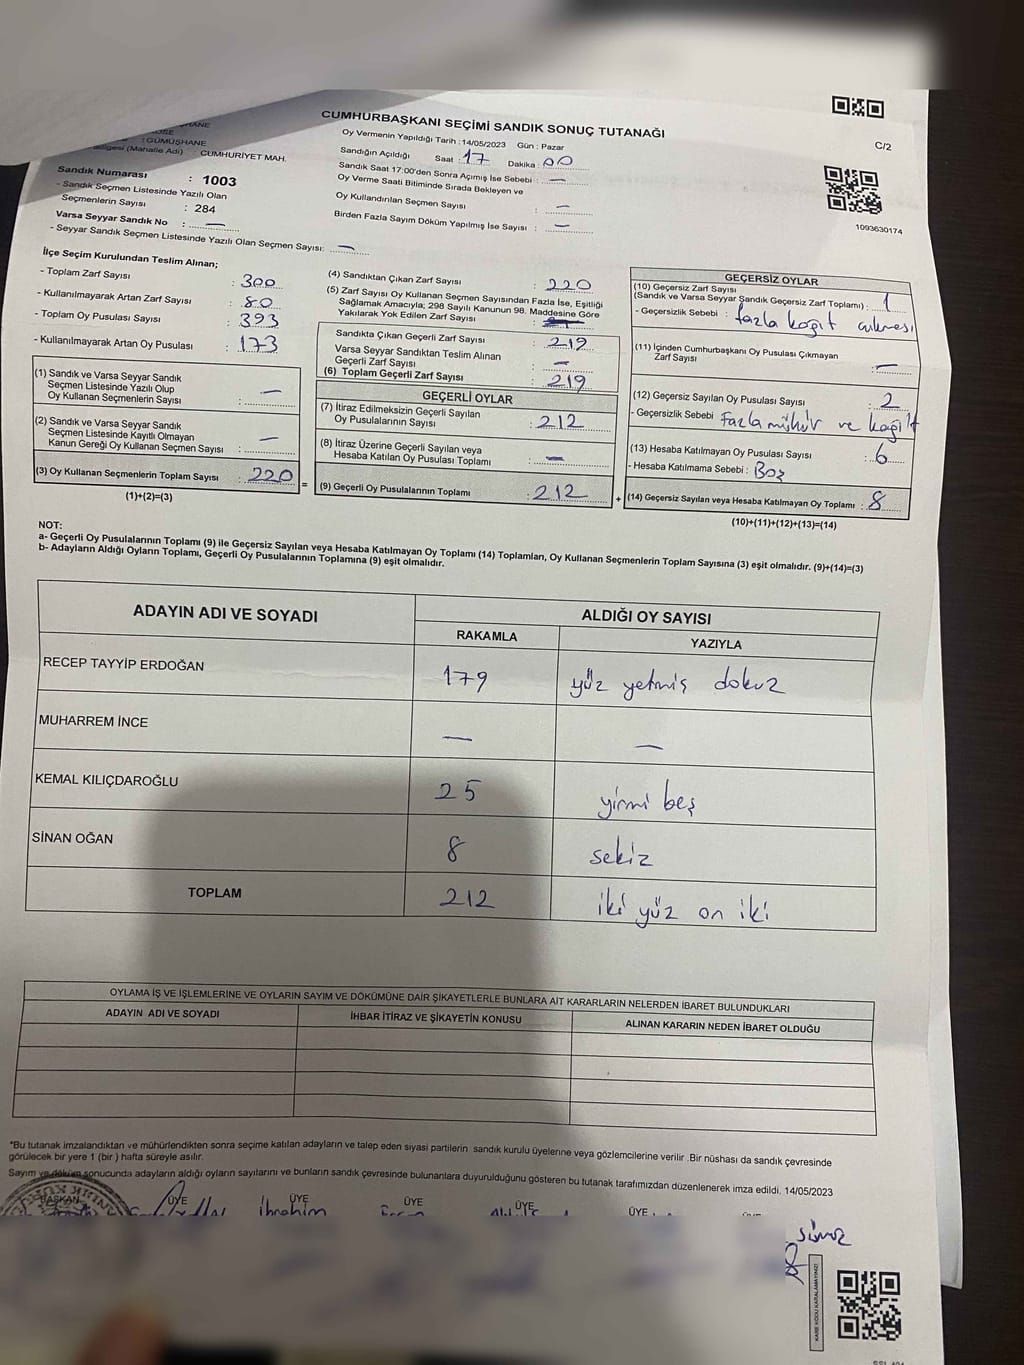 CUMHURBAŞKANI SEÇİMİ SANDIK SONUÇ TUTANAĞI
C/2
: GÜMÜŞHANE
Bölgesi (Mahalle Adı) : CUMHURİYET MAH.
Sandık Numarası : 1003
- Sandık Seçmen Listesinde Yazılı Olan
Seçmenlerin Sayısı : 284
Varsa Seyyar Sandık No : —
- Seyyar Sandık Seçmen Listesinde Yazılı Olan Seçmen Sayısı: —
Oy Vermenin Yapıldığı Tarih : 14/05/2023 Gün : Pazar
Sandığın Açıldığı Saat : 17 Dakika : 00
Sandık Saat 17:00'den Sonra Açımış İse Sebebi : —
Oy Verme Saati Bitiminde Sırada Bekleyen ve
Oy Kullandırılan Seçmen Sayısı : —
Birden Fazla Sayım Döküm Yapılmış İse Sayısı : —
1093630174
İlçe Seçim Kurulundan Teslim Alınan;
- Toplam Zarf Sayısı : 300
- Kullanılmayarak Artan Zarf Sayısı : 80
- Toplam Oy Pusulası Sayısı : 393
- Kullanılmayarak Artan Oy Pusulası : 173
(1) Sandık ve Varsa Seyyar Sandık
Seçmen Listesinde Yazılı Olup
Oy Kullanan Seçmenlerin Sayısı : —
(2) Sandık ve Varsa Seyyar Sandık
Seçmen Listesinde Kayıtlı Olmayan
Kanun Gereği Oy Kullanan Seçmen Sayısı : —
(3) Oy Kullanan Seçmenlerin Toplam Sayısı : 220
(1)+(2)=(3)
=
(4) Sandıktan Çıkan Zarf Sayısı : 220
(5) Zarf Sayısı Oy Kullanan Seçmen Sayısından Fazla İse, Eşitliği
Sağlamak Amacıyla; 298 Sayılı Kanunun 98. Maddesine Göre
Yakılarak Yok Edilen Zarf Sayısı :
Sandıkta Çıkan Geçerli Zarf Sayısı : 219
Varsa Seyyar Sandıktan Teslim Alınan
Geçerli Zarf Sayısı : —
(6) Toplam Geçerli Zarf Sayısı : 219
GEÇERLİ OYLAR
(7) İtiraz Edilmeksizin Geçerli Sayılan
Oy Pusulalarının Sayısı : 212
(8) İtiraz Üzerine Geçerli Sayılan veya
Hesaba Katılan Oy Pusulası Toplamı : —
(9) Geçerli Oy Pusulalarının Toplamı : 212
+
GEÇERSİZ OYLAR
(10) Geçersiz Zarf Sayısı
(Sandık ve Varsa Seyyar Sandık Geçersiz Zarf Toplamı) : 1
- Geçersizlik Sebebi : fazla kağıt çıkması
(11) İçinden Cumhurbaşkanı Oy Pusulası Çıkmayan
Zarf Sayısı : —
(12) Geçersiz Sayılan Oy Pusulası Sayısı : 2
- Geçersizlik Sebebi : Fazla mühür ve kağıt
(13) Hesaba Katılmayan Oy Pusulası Sayısı : 6
- Hesaba Katılmama Sebebi : Boş
(14) Geçersiz Sayılan veya Hesaba Katılmayan Oy Toplamı : 8
(10)+(11)+(12)+(13)=(14)
NOT:
a- Geçerli Oy Pusulalarının Toplamı (9) ile Geçersiz Sayılan veya Hesaba Katılmayan Oy Toplamı (14) Toplamları, Oy Kullanan Seçmenlerin Toplam Sayısına (3) eşit olmalıdır. (9)+(14)=(3)
b- Adayların Aldığı Oyların Toplamı, Geçerli Oy Pusulalarının Toplamına (9) eşit olmalıdır.
ADAYIN ADI VE SOYADI
ALDIĞI OY SAYISI
RAKAMLA YAZIYLA
RECEP TAYYİP ERDOĞAN 179 yüz yetmiş dokuz
MUHARREM İNCE — —
KEMAL KILIÇDAROĞLU 25 yirmi beş
SİNAN OĞAN 8 sekiz
TOPLAM 212 iki yüz on iki
OYLAMA İŞ VE İŞLEMLERİNE VE OYLARIN SAYIM VE DÖKÜMÜNE DAİR ŞİKAYETLERLE BUNLARA AİT KARARLARIN NELERDEN İBARET BULUNDUKLARI
ADAYIN ADI VE SOYADI İHBAR İTİRAZ VE ŞİKAYETİN KONUSU ALINAN KARARIN NEDEN İBARET OLDUĞU
*Bu tutanak imzalandıktan ve mühürlendikten sonra seçime katılan adayların ve talep eden siyasi partilerin sandık kurulu üyelerine veya gözlemcilerine verilir .Bir nüshası da sandık çevresinde
görülecek bir yere 1 (bir ) hafta süreyle asılır.
Sayım ve döküm sonucunda adayların aldığı oyların sayılarını ve bunların sandık çevresinde bulunanlara duyurulduğunu gösteren bu tutanak tarafımızdan düzenlenerek imza edildi. 14/05/2023
BAŞKAN ÜYE ÜYE ÜYE ÜYE ÜYE
İbrahim
KARE KODU KARALAMAYINIZ!